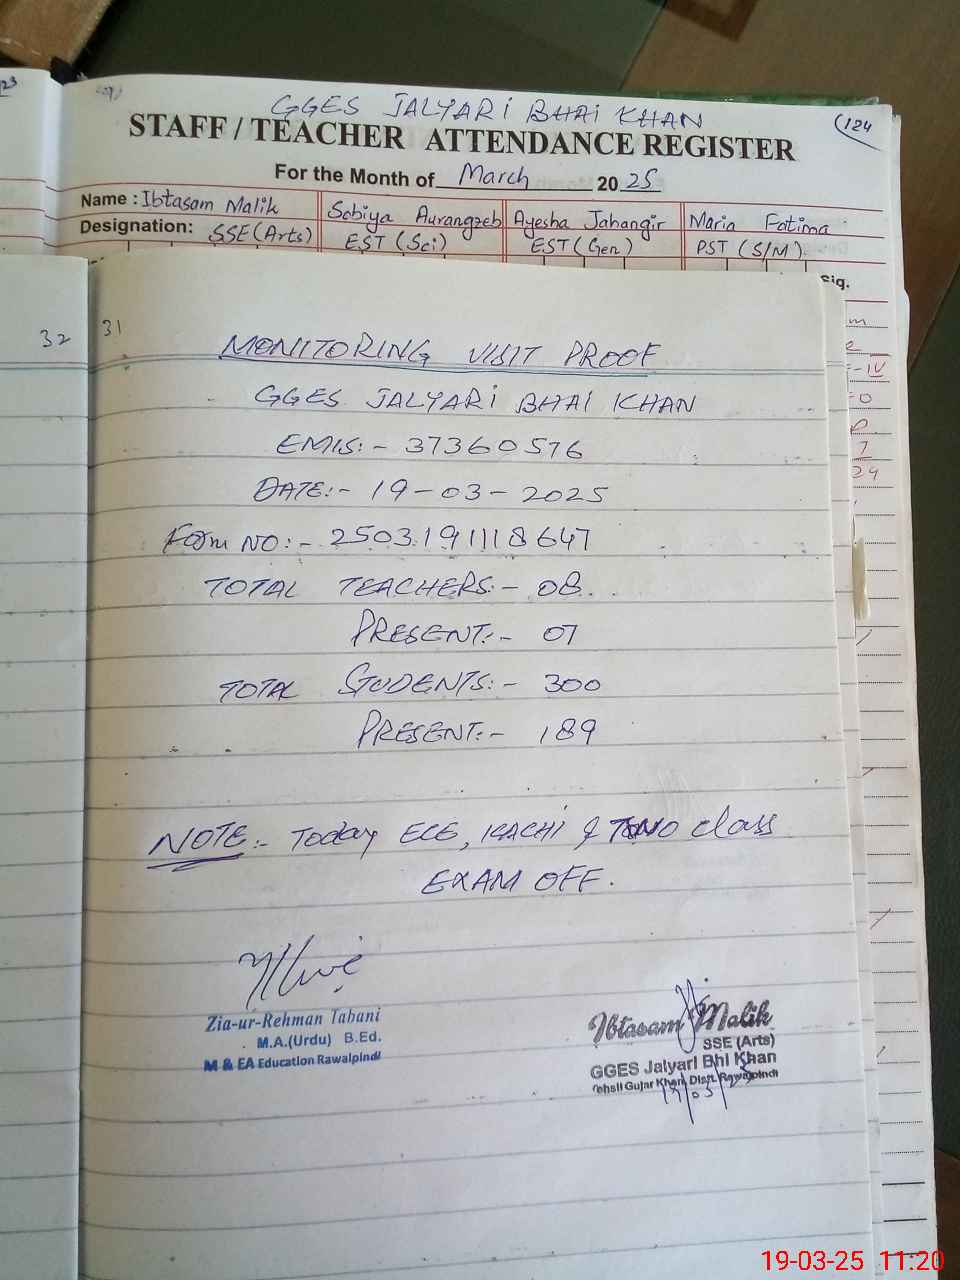 GGES JALYARI BHAI KHAN
124
STAFF / TEACHER ATTENDANCE REGISTER
For the Month of March 2025
Name : Ibtasam Malik Sobiya Aurangzeb Ayesha Jahangir Maria Fatima
Designation: SSE (Arts) EST (Sci) EST (Gen) PST (S/M)
Sig.
32 31
MONITORING VISIT PROOF
GGES JALYARI BHAI KHAN
EMIS:- 37360576
DATE:- 19-03-2025
Form NO:- 2503191118647
TOTAL TEACHERS:- 08
PRESENT:- 07
TOTAL STUDENTS:- 300
PRESENT:- 189
NOTE:- Today ECE, KACHI & TWO class
EXAM OFF.
Zia-ur-Rehman Tabani
M.A.(Urdu) B.Ed.
M & EA Education Rawalpindi
Ibtasam Malik
SSE (Arts)
GGES Jalyari Bhi Khan
Tehsil Gujar Khan, Distt. Rawalpindi
19/03/25
19-03-25 11:20